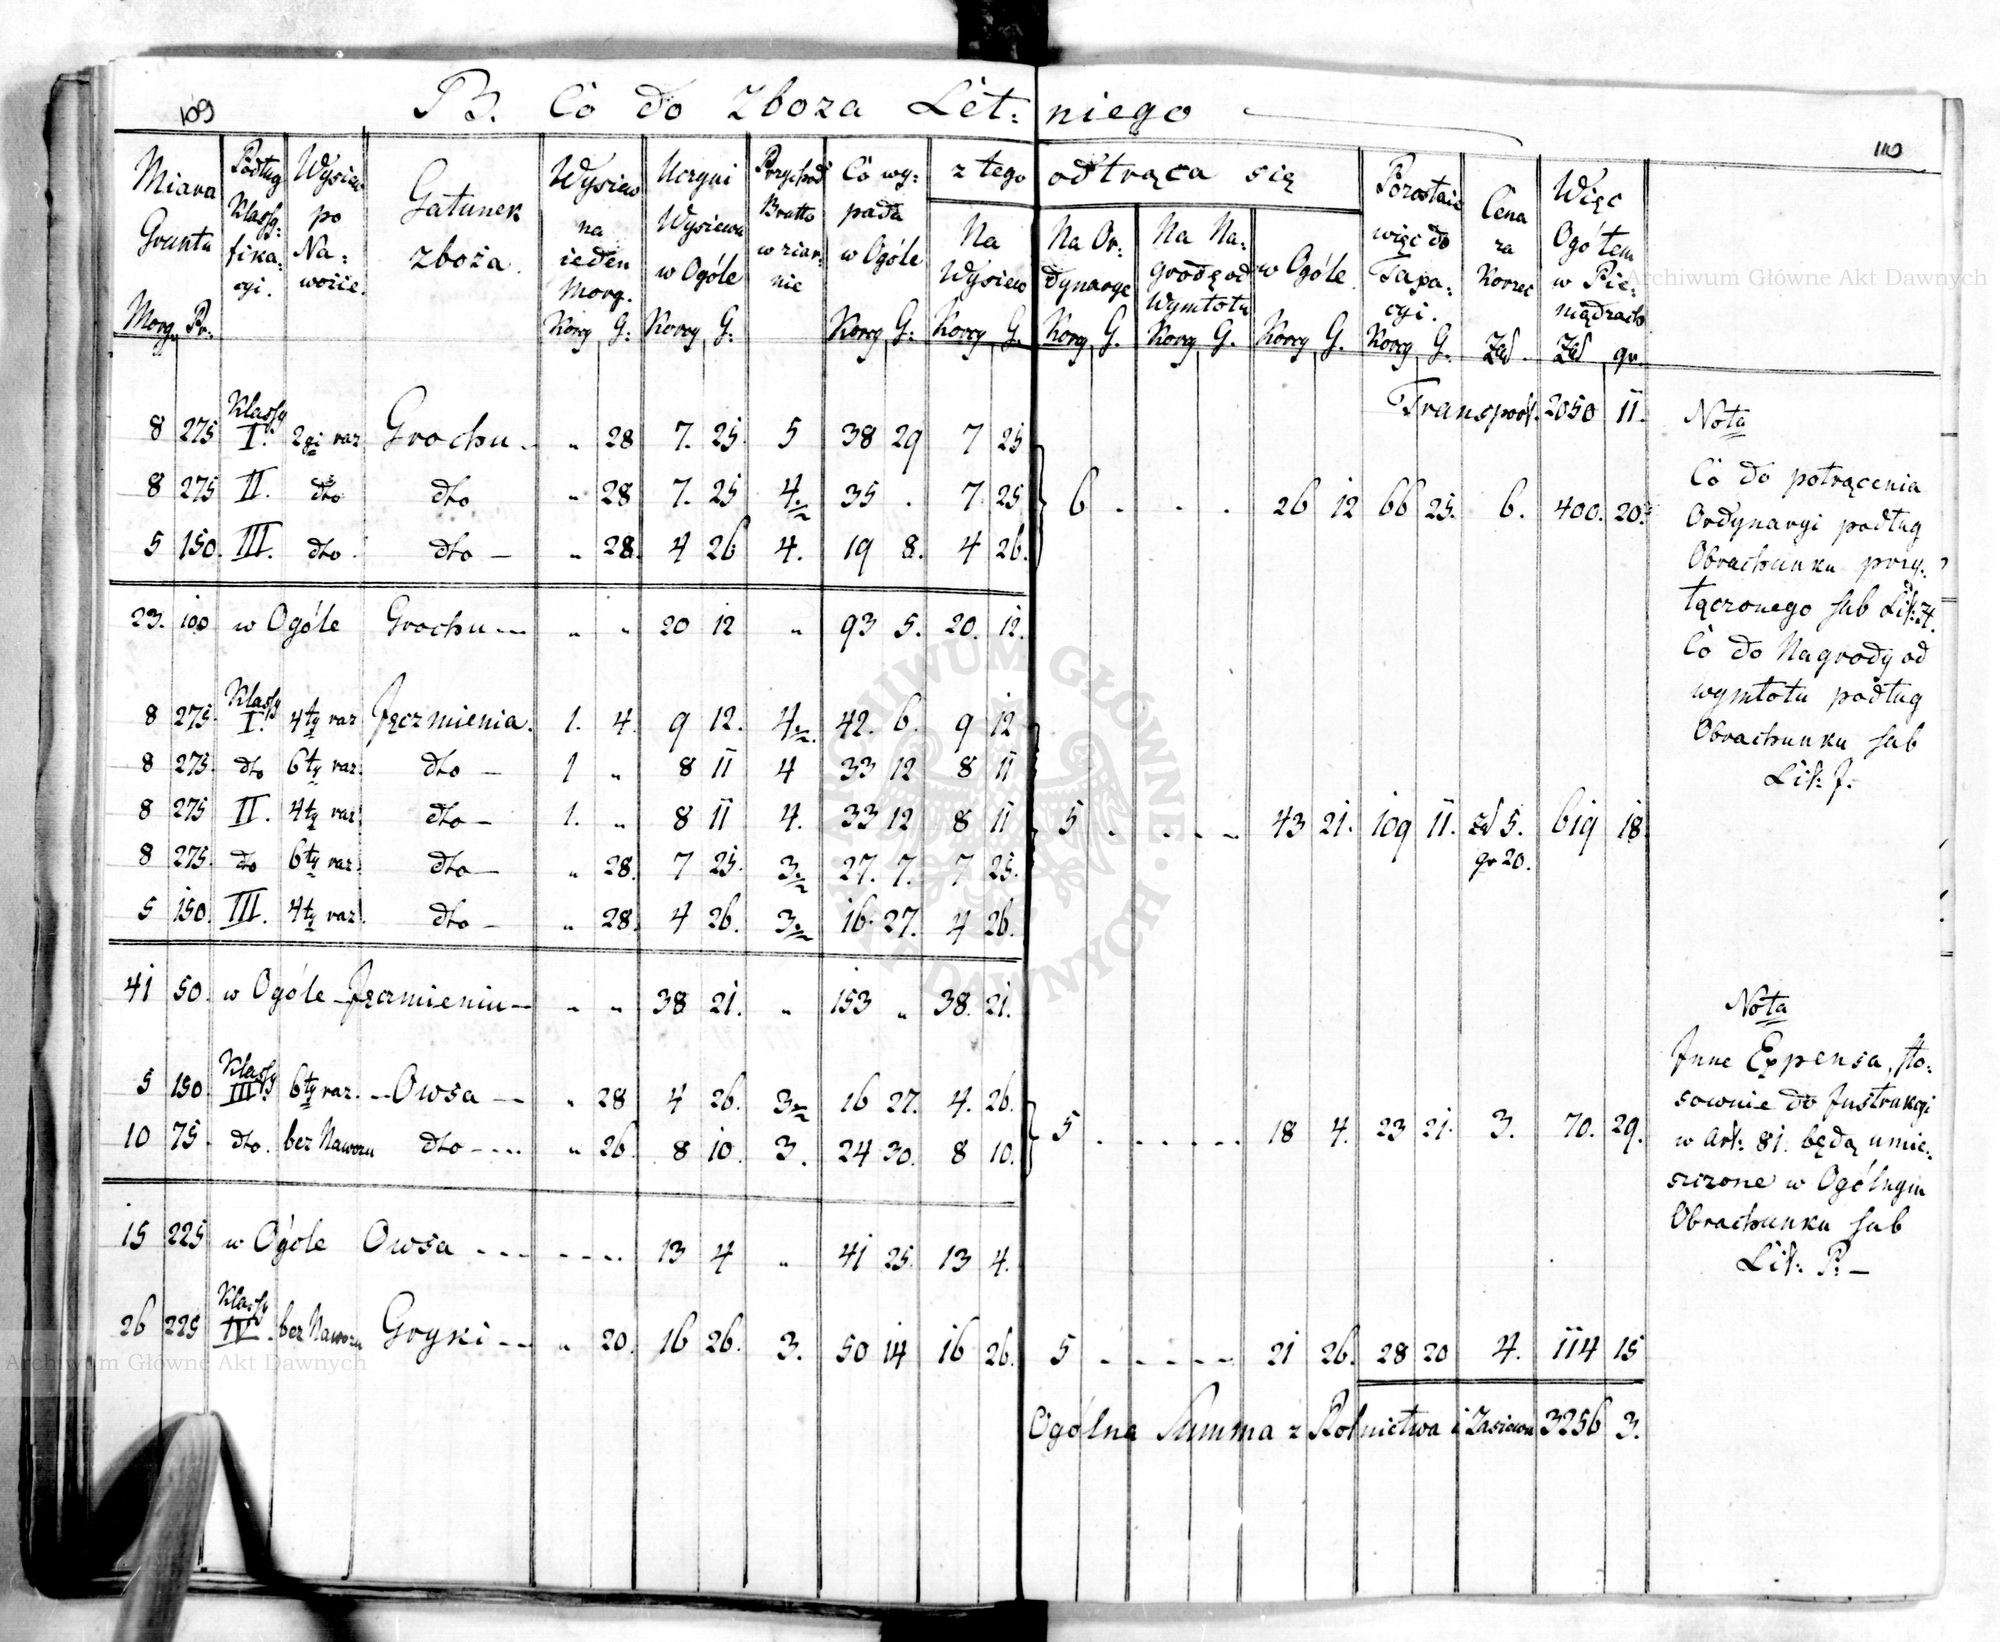 109
B. Co do Zboza Let: niego
110
Miara Gruntu
Podług Klassyfikacyi.
Wysiew po Nawozie.
Gatunek zboża.
Wysiew na ieden Morg.
Uczyni Wysiewu w Ogóle
Przychod Brutto w ziarnie
Co wypada w Ogóle
z tego odtrąca się
Na Wysiew
Na Ordynarye
Na Nagrodę od Wymłotu
w Ogóle
Pozostaie więc do Taxacyi.
Cena za Korzec
Więc Ogółem w Pieniądzach
Morg. Pr: Korcy G: Korcy G: Korcy G: Korcy G. Korcy G. Korcy G. Korcy G. Korcy G. Zł. Zł gr.
Transport. 2050 11.
8 275 Klassy I. 2gi raz Grochu „ 28 7. 25 5 38 29 7 25
8 275 II. dto dto „ 28 7. 25 4. 35 . 7. 25 6 . . . 26 12 66 25. 6. 400. 20.
5 150. III. dto. dto „ 28. 4 26 4. 19 8. 4 26.
23. 100 w Ogóle Grochu „ „ 20 12 „ 93 5. 20. 12.
8 275. Klassy I. 4ty raz Jęczmienia. 1. 4. 9 12. 4. 42. 6. 9 12
8 275. dto 6ty raz dto 1 „ 8 11 4 33 12 8 11
8 275 II. 4ty raz dto 1. „ 8 11 4. 33 12 8 11 5 . . . . 43 21. 109 11. zł 5. gr 20. 619 18.
8 275. dto 6ty raz dto „ 28. 7 25. 3. 27. 7. 7 25.
5 150. III. 4ty raz dto „ 28. 4 26. 3. 16. 27. 4 26.
41 50. w Ogóle Jęczmieniu „ „ 38 21. „ 153 „ 38. 21.
5 150. Klassy III. 6ty raz. Owsa „ 28 4 26. 3 16 27. 4. 26.
10 75 dto. bez Nawozu dto „ 26. 8 10. 3. 24 30. 8 10. 5 . . . . . 18 4. 23 21. 3. 70. 29.
15 225 w Ogóle Owsa 13 4 „ 41 25. 13 4.
26 225 Klassy IV. bez Nawozu Gryki „ 20. 16 26. 3. 50 14 16 26. 5 21 26. 28 20 4. 114 15
Ogólna Summa z Rolnictwa i Zasiewu 3256 3.
Nota
Co do potrącenia
Ordynaryi podług
Obrachunku przy:
łączonego sub Lit:
Co do Nagrody od
wymłotu podług
Obrachunku sub
Lit: J.
Nota
Inne Expensa, sto:
sownie do Instrukcyi
w Art: 81. będą umie:
szczone w Ogólnym
Obrachunku sub
Lit: P.
Archiwum Główne Akt Dawnych
Archiwum Główne Akt Dawnych
ARCHIWUM GŁÓWNE AKT DAWNYCH